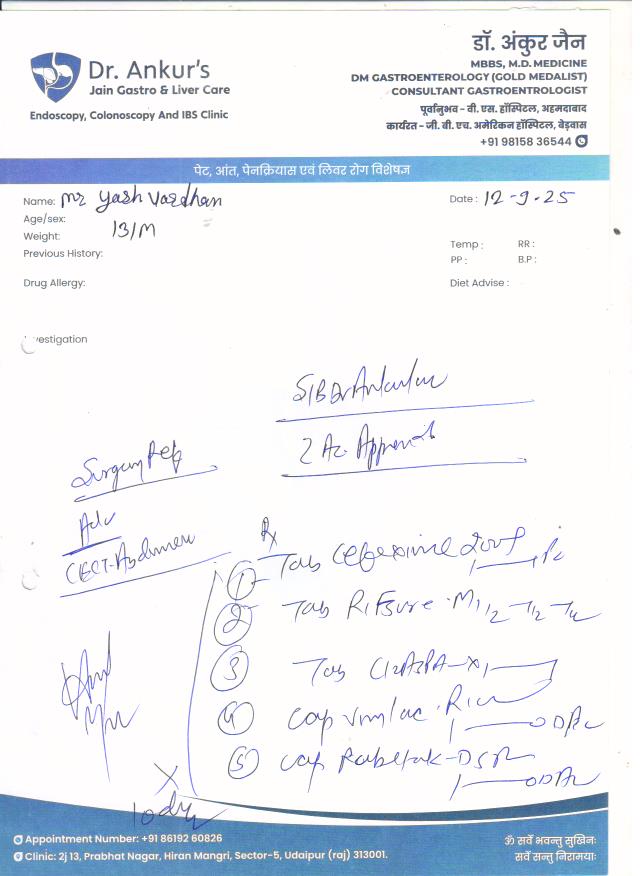 Dr. Ankur's
Jain Gastro & Liver Care
Endoscopy, Colonoscopy And IBS Clinic
डॉ. अंकुर जैन
MBBS, M.D. MEDICINE
DM GASTROENTEROLOGY (GOLD MEDALIST)
CONSULTANT GASTROENTROLOGIST
पूर्वानुभव - वी. एस. हॉस्पिटल, अहमदाबाद
कार्यरत - जी. बी. एच. अमेरिकन हॉस्पिटल, बेड़वास
+91 98158 36544
पेट, आंत, पेनक्रियास एवं लिवर रोग विशेषज्ञ
Name: Mr Yash Vardhan
Date : 12-9-25
Age/sex:
13/M
Weight:
Previous History:
Temp : RR :
PP : B.P :
Drug Allergy:
Diet Advise :
vestigation
S/B Dr Ankur
Surgery Ref
Adv
CECT-Abdomen
Rx
1 Tab Cefexime 200
2 Tab Rifsure-M 1/2
3 Tab
4 Cap
5 Cap -DSR
X 10 day
Appointment Number: +91 86192 60826
Clinic: 2j 13, Prabhat Nagar, Hiran Mangri, Sector-5, Udaipur (raj) 313001.
ॐ सर्वे भवन्तु सुखिनः
सर्वे सन्तु निरामयाः